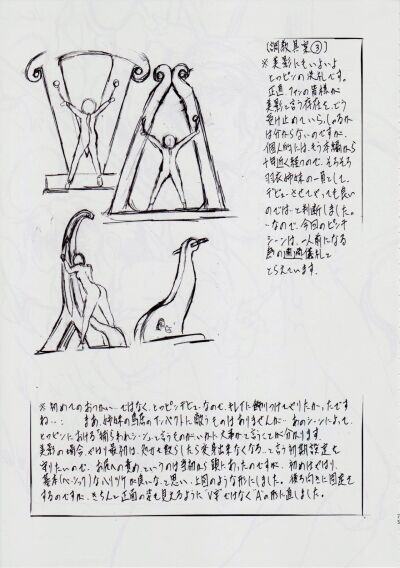 (調教具案③)
※美影にもいよいよ
とっピンの洗礼です。
正直、ファンの皆様が
美影と言う存在を、どう
受け止めていらっしゃるか
は分からないのですが、
個人的には、もう本編から
十年近く経つので、そろそろ
羽衣姉妹の一員として、
デビューさせてやっても良い
のでは…と判断しました。
…なので、今回のピンチ
シーンは、一人前になる
為の通過儀礼と
とらえています。
※初めてのおつかい…ではなく、とっピンデビューなので、キレイに飾りつけてやりたかったです
ね…: まあ、姉妹の鳥居のインパクトに敵うものはありませんが… あのシーンによって、
とっピンにおける"捕らわれシーン"と言うものが、いかに大事かと言うことが分かります。
美影の場合、やはり最初は、処女を散らしたら変身出来なくなる…って言う初期設定を
守りたいので、お尻への責め、というのは当初から頭にあったのですが、初めはやはり、
基本(ベーシック)なハリツケが良いな、と思い、上図のような形にしました。後ろ向きに固定を
するのですが、きちんと正面の姿も見えるように"V字"ではなく"A"の形に直しました。